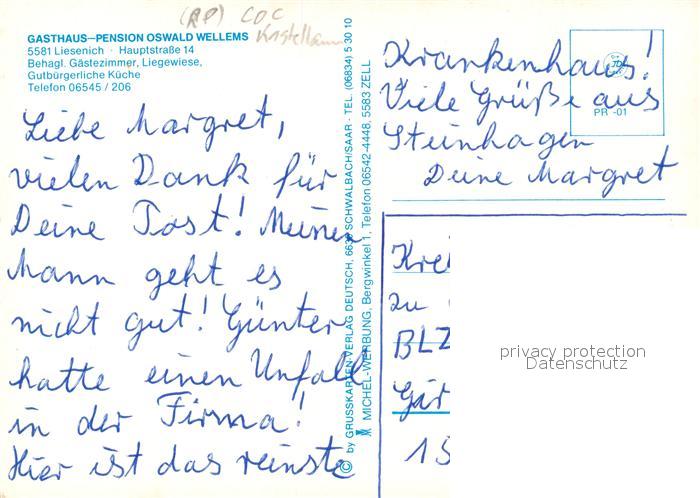 (RP) COC
GASTHAUS–PENSION OSWALD WELLEMS
5581 Liesenich · Hauptstraße 14
Behagl. Gästezimmer, Liegewiese,
Gutbürgerliche Küche
Telefon 06545 / 206
Liebe Margret,
vielen Dank für
Deine Post! Meinen
Mann geht es
nicht gut! Günter
hatte einen Unfall
in der Firma!
Hier ist das reinste
© by GRUSSKARTEN-VERLAG DEUTSCH, SCHWALBACH/SAAR - TEL. (06834) 5 30 10
MICHEL-WERBUNG, Bergwinkel 1, Telefon 06542-4448, 5583 ZELL
Krankenhaus!
Viele Grüße aus
Steinhagen
Deine Margret
PR -01
zu
BLZ
privacy protection
Datenschutz